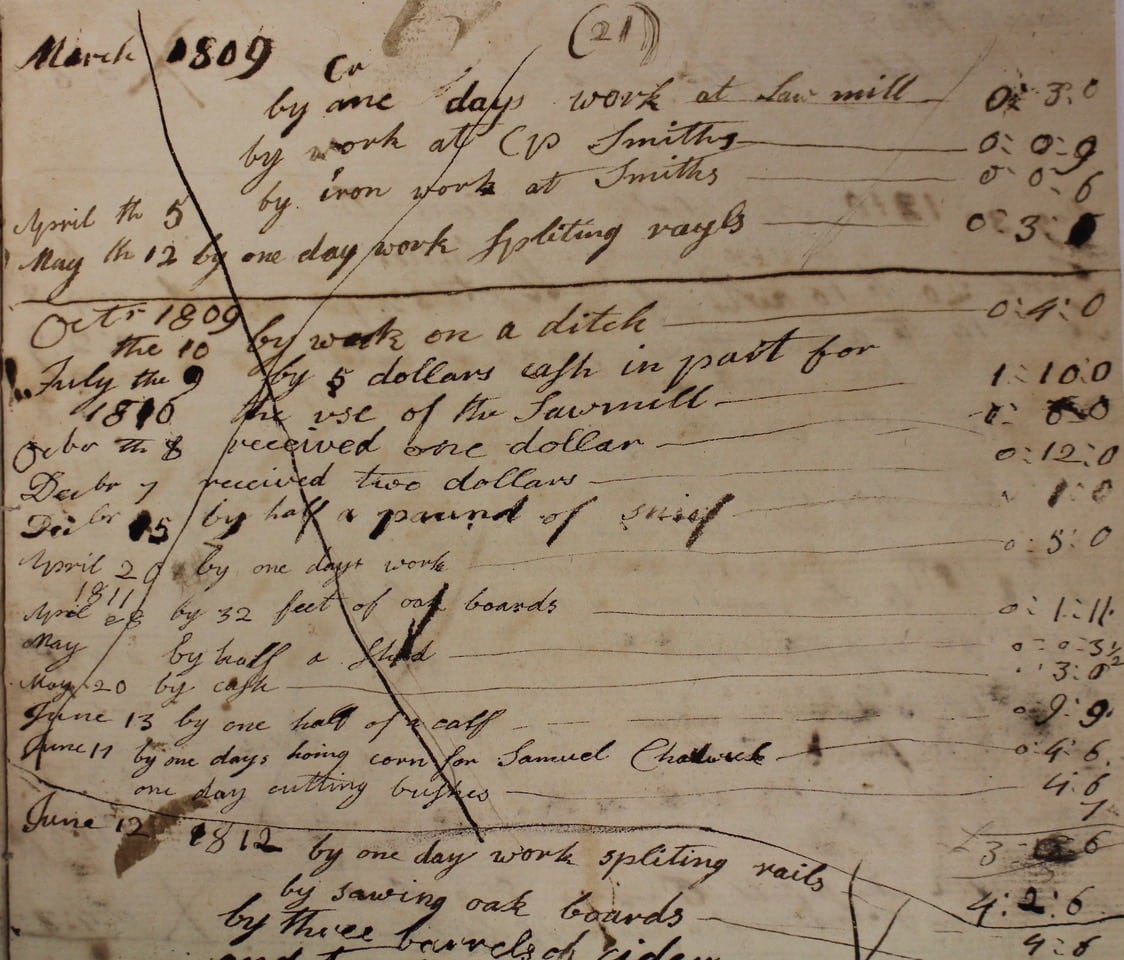 (21)
March 1809
Cr
by one days work at Saw mill 0: 3: 0
by work at Cp Smiths 0: 0: 9
by iron work at Smiths 0: 0: 6
April th 5
May th 12 by one day work spliting rayls 0: 3:
Octr 1809
the 10 by work on a ditch 0: 4: 0
July the 9 by 5 dollars cash in part for
1810 the use of the Sawmill 1: 10: 0
Ocbr the 8 received one dollar
Decbr 7 received two dollars 0: 12: 0
Decbr 15 by half a pound of 1: 0
April 20 by one days work 0: 5: 0
1811
April by 32 feet of oak boards 0: 1: 11
May by half a 0: 0: 3½
May 20 by cash 3: 0
June 13 by one half of a calf 0: 9: 9
June 11 by one days hoing corn for Samuel 0: 4: 6
one day cutting bushes 4: 6
7
June 12 1812 £3 6
by one day work spliting rails
by sawing oak boards 4: 2: 6
by three barrels of cider 4: 6